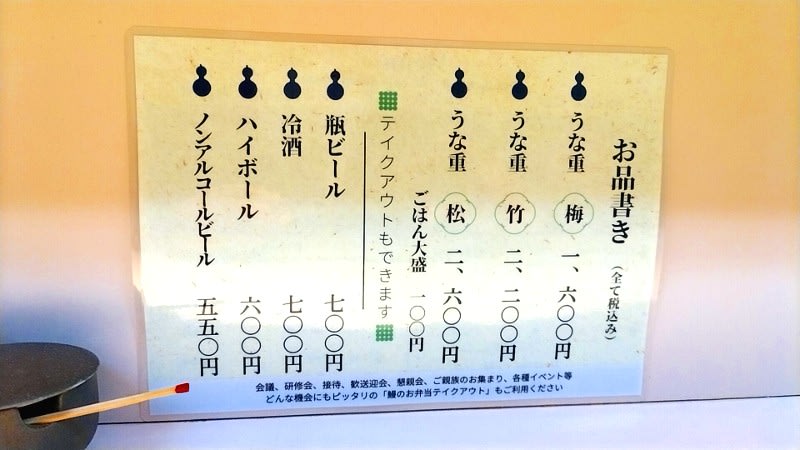 お品書き（全て税込み）
うな重 梅 一、六〇〇円
うな重 竹 二、二〇〇円
うな重 松 二、六〇〇円
ごはん大盛 一〇〇円
テイクアウトもできます
瓶ビール 七〇〇円
冷酒 七〇〇円
ハイボール 六〇〇円
ノンアルコールビール 五五〇円
会議、研修会、接待、歓送迎会、懇親会、ご親族のお集まり、各種イベント等
どんな機会にもピッタリの「鰻のお弁当テイクアウト」もご利用ください